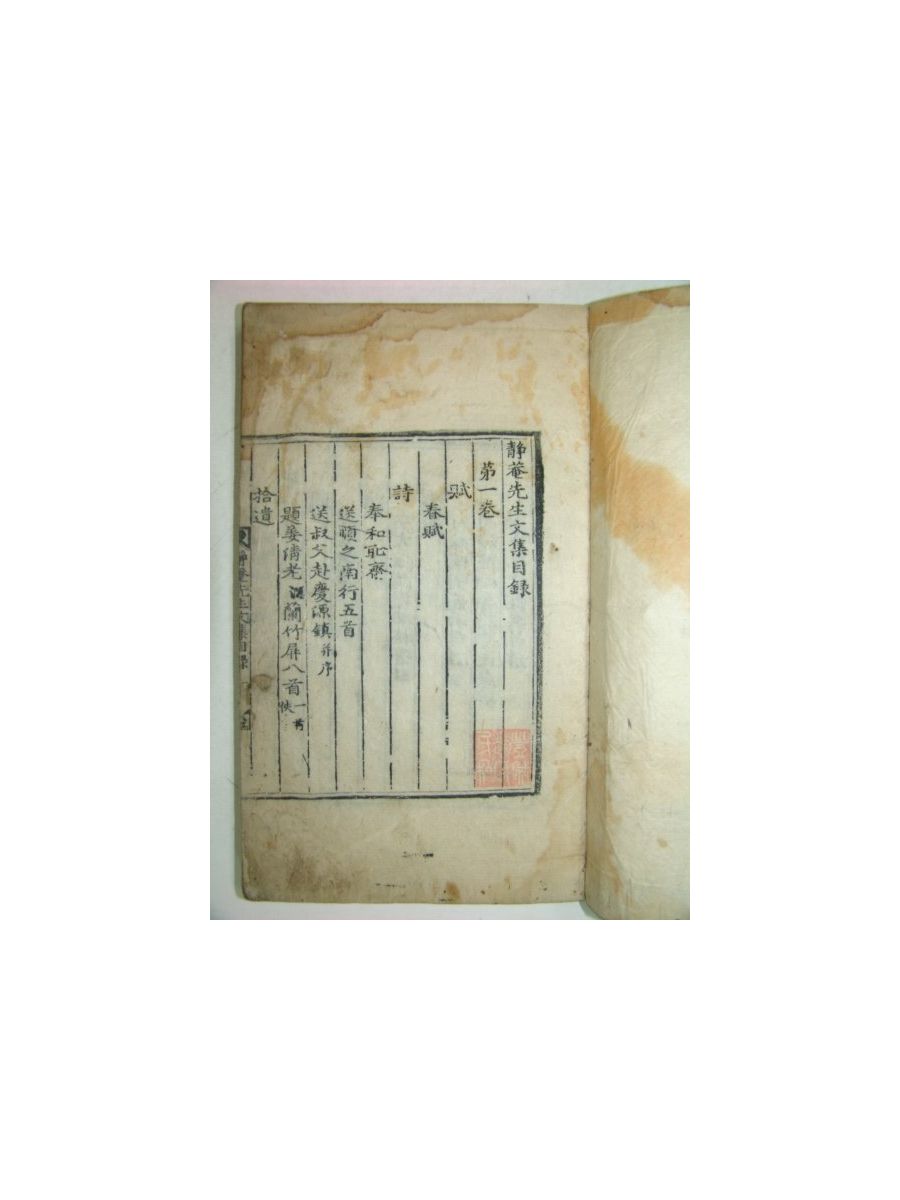 靜菴先生文集目錄
第一卷
賦
春賦
詩
奉和恥齋
送順之南行五首
送叔父赴慶源鎮并序
題姜清老 蘭竹屏八首一首佚
拾遺
靜菴先生文集目錄